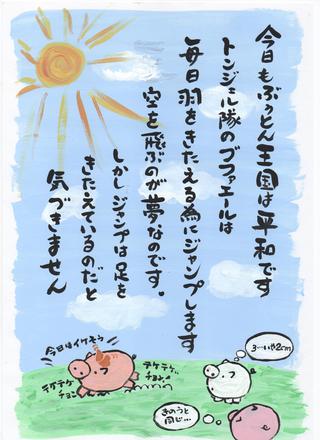 今日もぶぅとん王国は平和です
トンジェル隊のブファエールは
毎日羽をきたえる為にジャンプします
空を飛ぶのが夢なのです。
しかしジャンプは足を
きたえているのだと
気づきません
今日はイケそう
テケテケ
チョン
テケテケ
チョン
3…いや2cm
きのうと
同じ…